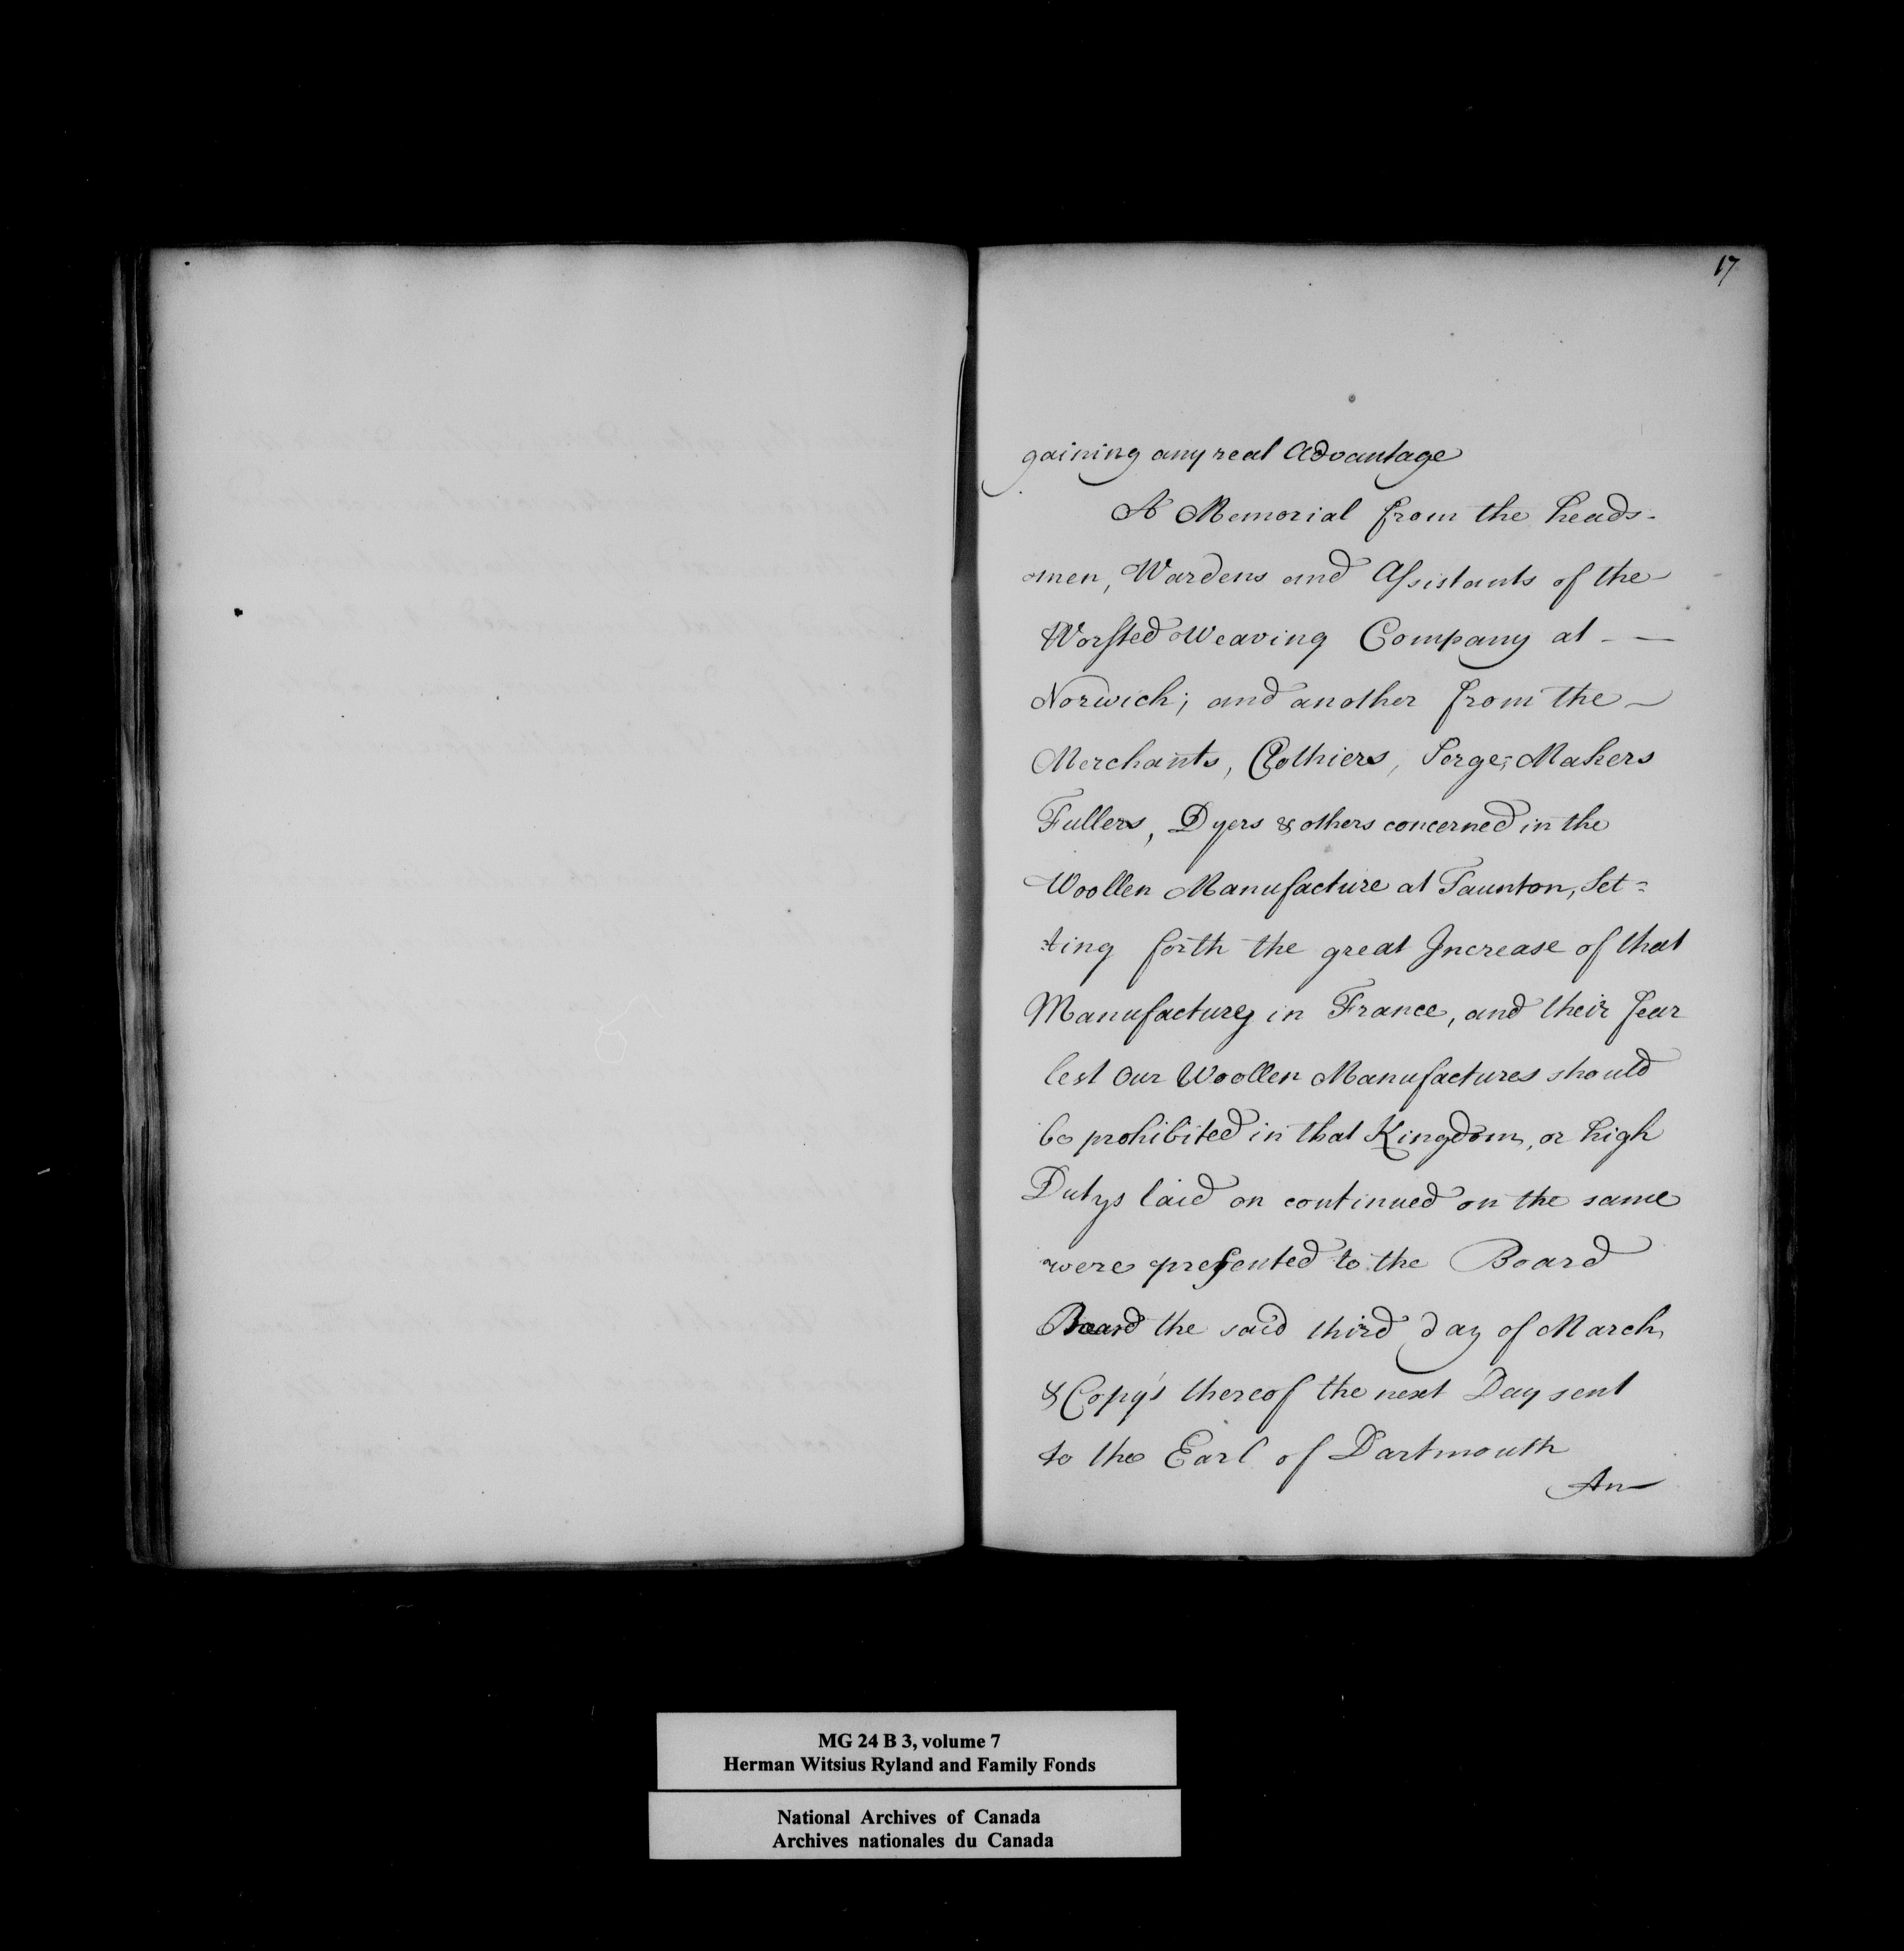 17
gaining any real Advantage
A Memorial from the heads-
-men, Wardens and Assistants of the
Worsted Weaving Company at - —
Norwich; and another from the —
Merchants, Clothiers, Serge-Makers
Fullers, Dyers & others concerned in the
Woollen Manufacture at Taunton, Set=
=ting forth the great Increase of that
Manufacture in France, and their fear
lest our Woollen Manufactures should
be prohibited in that Kingdom, or high
Dutys laid or continued on the same
were presented to the Board
Board the said third day of March,
& Copy's thereof the next Day sent
to the Earl of Dartmouth
An
MG 24 B 3, volume 7
Herman Witsius Ryland and Family Fonds
National Archives of Canada
Archives nationales du Canada